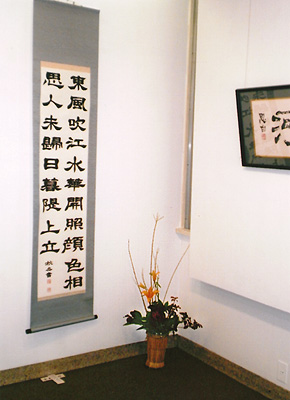 東風吹江水華開照顔色相
思人未歸日暮隄上立